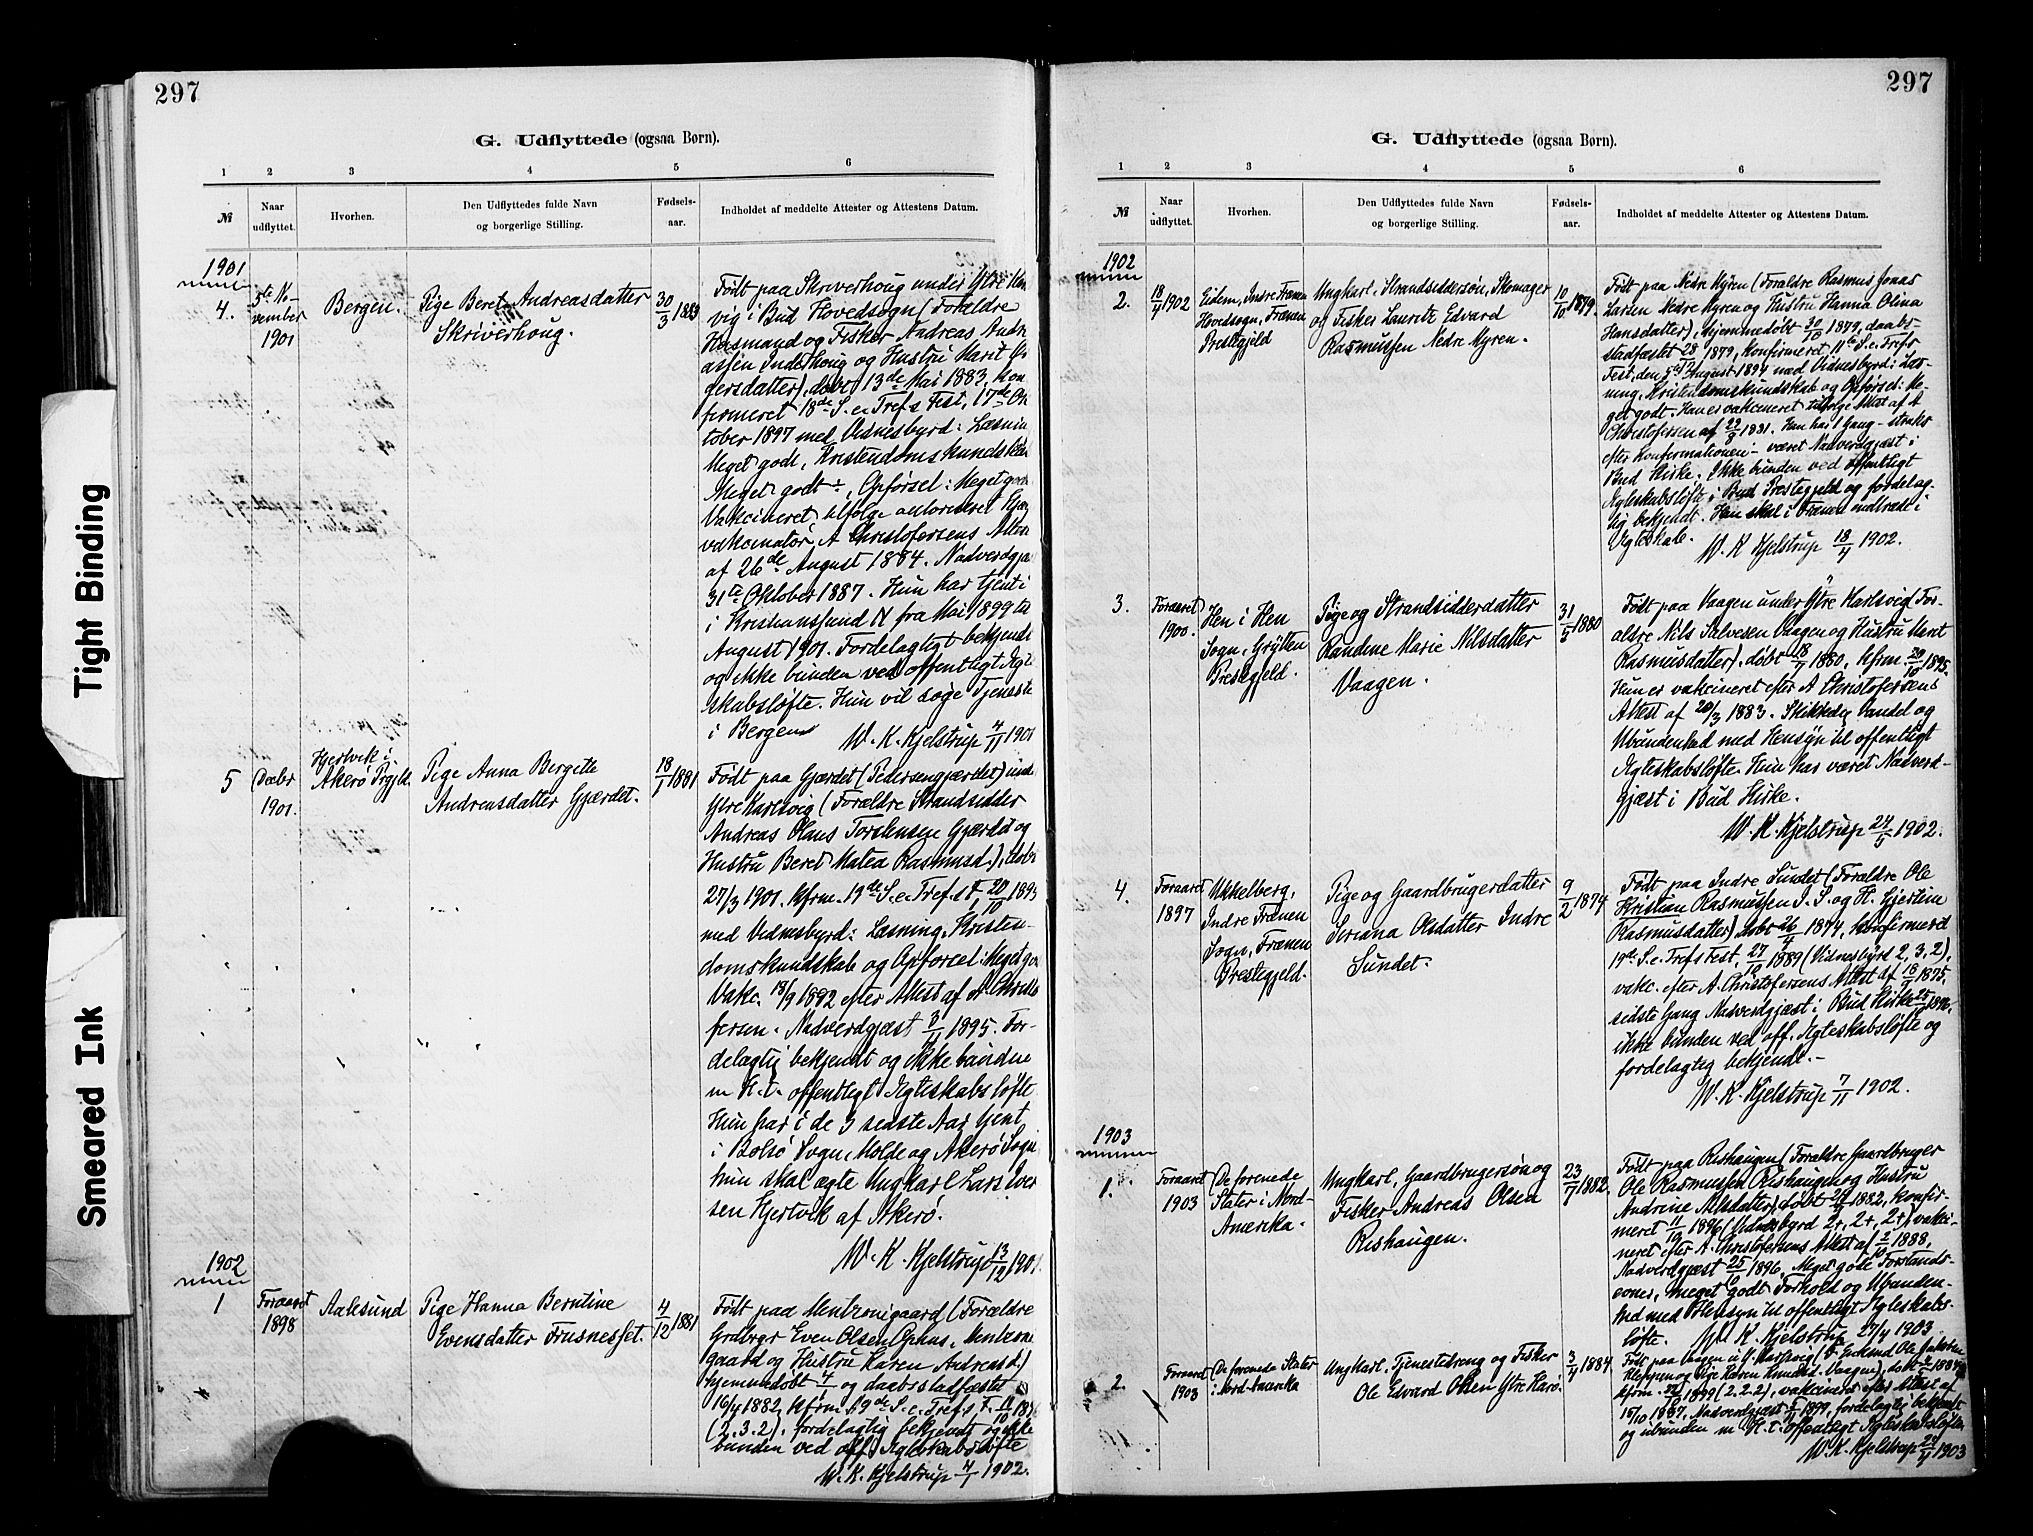 297
G. Udflyttede (ogsaa Børn).
1 2 3 4 5 6
№ Naar udflyttet. Hvorhen. Den Udflyttedes fulde Navn og borgerlige Stilling. Fødsels-aar. Indholdet af meddelte Attester og Attestens Datum.
1901
4.
5te No-
vember
1901
Bergen.
Pige Beret Andreasdatter
Skriverhoug.
30/3 1883
Født paa Skriverhoug under Ytre
vig i Bud Hovedsogn (Forældre
Husmand og Fisker Andreas Andre
assen Inderhoug og Hustru Marit
dersdatter), døbt 13de Mai 1883, Kon
firmeret 18de S. e. Tref's Fest, 17de Ok
tober 1897 med Vidnesbyrd: Læsnin
Meget godt, Kristendomskundska
Meget godt ÷, Opførsel: Meget god
Vakcineret tilfølge autoriseret Hjæ
vakcinatør A Christofersens Attes
af 26de August 1884. Nadverdgjæ
31te Oktober 1887. Hun har tjent i
Kristiansund N fra Mai 1899 til
August 1901. Fordelagtigt bekjendt
og ikke bunden ved offentligt Ægte
skabsløfte. Hun vil søge Tjeneste
i Bergen
W. K. Kjelstrup 4/11 1901
5
Decbr
1901.
Hjertvik i
Akerø Prgjld.
Pige Anna Bergitte
Andreasdatter Gjærdet.
18/1 1881
Født paa Gjærdet (Pedersengjærdet) unde
Ytre Karlsvig (Forældre Strandsidder
Andreas Olaus Torstensen Gjærdet og
Hustru Beret Matea Rasmusd.), døbt
27/3 1901. Kfrm. 19de S. e. Tref's F, 20/10 1895
med Vidnesbyrd: Læsning, Kristen-
domskundskab og Opførsel: Meget go
Vakc. 13/9 1892 efter Attest af A Christo
fersen. Nadverdgjæst 3/11 1895. For-
delagtig bekjendt og ikke bunden
m H. t. offentligt Ægteskabsløfte
Hun har i de 3 sidste Aar tjent
i Bolsø Sogn, Molde og Akerø Sogn
hun skal ægte Ungkarl Lars Iver
sen Hjertvik af Akerø.
W. K. Kjelstrup 13/12 1901.
1902
1
Foraaret
1898
Aalesund
Pige Hanna Berntine
Evensdatter Frusnesset.
4/12 1881
Født paa Mentzonigaard (Forældre
Grdbrgr Even Olsen Ophus, Mentzoni
gaard og Hustru Karen Andreasd.)
hjemmedøbt 4/ og daabsstadfæstet
16/4 1882, kfrm. 19de S. e. Tref's F. 11/10 1896
(2. 3. 2), fordelagtig bekjendt og ikke
bunden ved off. Ægteskabsløfte
W. K. Kjelstrup 4/1 1902.
297
G. Udflyttede (ogsaa Børn).
1 2 3 4 5 6
№ Naar udflyttet. Hvorhen. Den Udflyttedes fulde Navn og borgerlige Stilling. Fødsels-aar. Indholdet af meddelte Attester og Attestens Datum.
1902
2.
18/4 1902
Eidem, Indre Frænen
Hovedsogn, Frænen
Prestegjeld
Ungkarl, Strandsiddersøn, Skomager
og Fisker Lauritz Edvard
Rasmussen Nedre Myren.
10/10 1879.
Født paa Nedre Myren (Forældre Rasmus Jonas
Larsen Nedre Myren og Hustru Hanna Olina
Hansdatter), hjemmedøbt 30/10 1879, daabs-
stadfæstet 28/ 1879, Konfirmeret 11te S. e. Tref's
Fest, den 5te August 1894 med Vidnesbyrd i Læs-
ning, Kristendomskundskab og Opførsel: Me-
get godt. Han er vakcineret tilfølge Attest af A
Christofersen af 22/8 1881. Han har 1 Gang - straks
efter Konfirmationen - været Nadverdgjæst i
Bud Kirke. Ikke bunden ved offentligt
Ægteskabsløfte i Bud Prestegjeld og fordelag-
tig bekjendt. Han skal i Frænen indtræde i
Ægteskab.
W. K Kjelstrup 18/4 1902.
3.
Foraaret
1900.
Hen i Hen
Sogn, Grytten
Prestegjeld.
Pige og Strandsidderdatter
Randine Marie Nilsdatter
Vaagen.
31/5 1880
Født paa Vaagen under Ytre Harlsvig (For-
ældre Nils Salvesen Vaagen og Hustru Marit
Rasmusdatter), døbt 18/7 1880, kfrm. 20/10 1895.
Hun er vakcineret efter A Christofersens
Attest af 20/3 1883. Skikkelig Vandel og
Ubundenhed med Hensyn til offentligt
Ægteskabsløfte. Hun har været Nadverd-
gjæst i Bud Kirke.
W. K. Kjelstrup 24/5 1902.
4.
Foraaret
1897
Ukkelberg,
Indre Frænen
Sogn, Frænen
Prestegjeld.
Pige og Gaardbrugerdatter
Seriana Olsdatter Indre
Sundet.
9/2 1874
Født paa Indre Sundet (Forældre Ole
Kristian Rasmussen I. S. og H. Gjertine
Rasmusdatter) døbt 26/4 1874, konfirmered
19de S. e. Tref's Fest, 27/10 1889 (Vidnesbyrd 2, 3, 2),
vakc. efter A. Christofersens Attest af 18/ 1875,
sidste Gang Nadverdgjæst i Bud Kirke 25/ 1896,
ikke bunden ved off. Ægteskabsløfte og
fordelagtig bekjendt.-
W. K. Kjelstrup 7/11 1902.
1903
1.
Foraaret
1903
De forenede
Stater i Nord-
Amerika.
Ungkarl, Gaardbrugersøn og
Fisker Andreas Olsen
Rishaugen.
23/7 1882.
Født paa Rishaugen (Forældre Gaardbruger
Ole Rasmussen Rishaugen og Hustru
Andrine Nilsdatter), døbt 24/ 1882, konfir-
meret 11/10 1896 (Vidnesbyrd 2+, 2+, 2+), vakci-
neret efter A. Christofersens Attest af 2/10 1888,
Nadverdgjæst 25/10 1896, Meget gode Forstands-
evner, meget godt Forhold og Ubunden-
hed med Hensyn til offentligt Ægteskabs-
løfte. W. K. Kjelstrup 27/4 1903
2.
Foraaret
1903
De forenede Stater
i Nord-Amerika
Ungkarl, Tjenestedreng og Fisker
Ole Edvard Olsen Ytre Harø.
3/4 1884
Født paa Vaagen u. Y. Harlsvig (F. Enkemd Ole Jakobsen
Kleppen og Pige Karen Knudsd. Vaagen), døbt 1884,
kfrm. 1899 (2. 2. 2), vakcineret efter Attest af
15/10 1887, Nadverdgjæst 1899, fordelagtig bekjendt
og ubunden m H. t. offentligt Ægteskabsløfte.
W. K. Kjelstrup 1903
Tight Binding
Smeared Ink